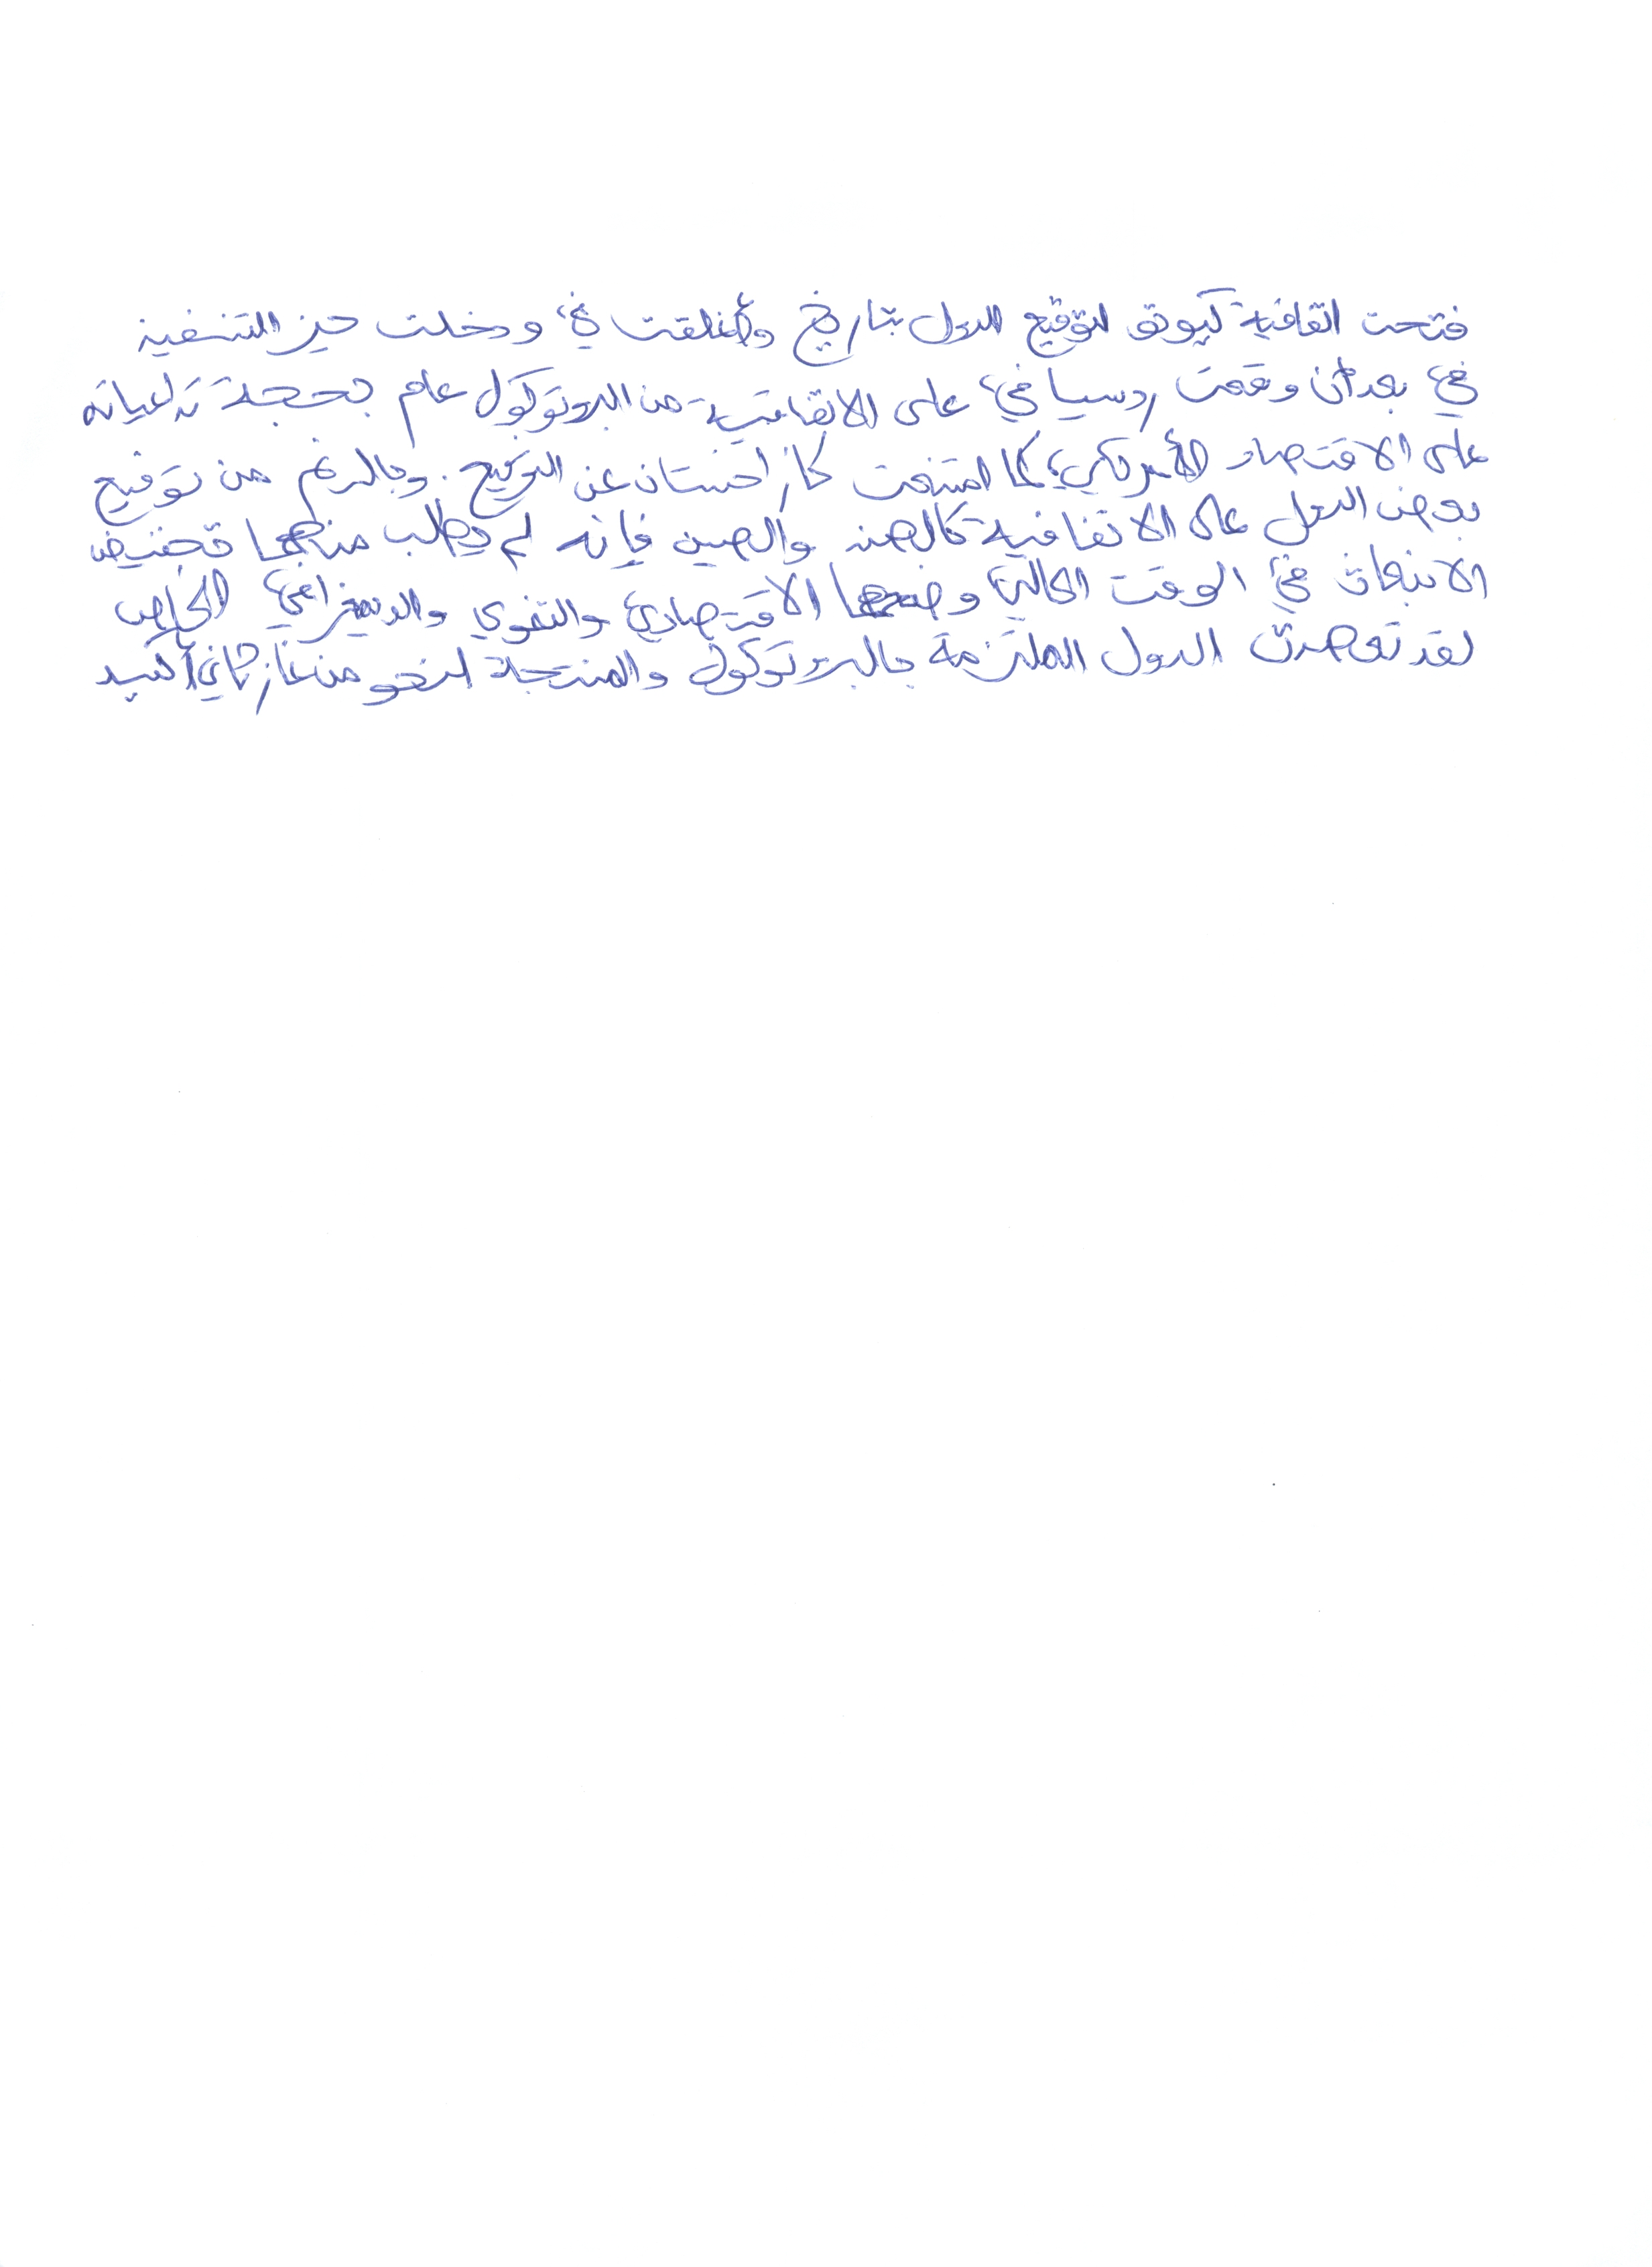 فتحت اتفاقية كيوتو لتوقيع الدول بتاريخ وأغلقت في، ودخلت حيز التنفيذ
في بعد أن وقعت روسيا في، على الاتفاقية من البروتوكول عام بحجة تداعياته
على الاقتصاد الأمريكي، كما امتنعت كازاخستان عن التوقيع. وبالرغم من توقيع
بعض الدول على الاتفاقية كالهند والصين فإنه لم يطلب منهما تخفيض
الانبعاث في الوقت الحالي وضعها الاقتصادي والتنموي والديمغرافي الخاص
لقد تعهدت الدول الملتزمة بالبروتوكول والمنتجة لنحو من غاز ثاني أكسيد